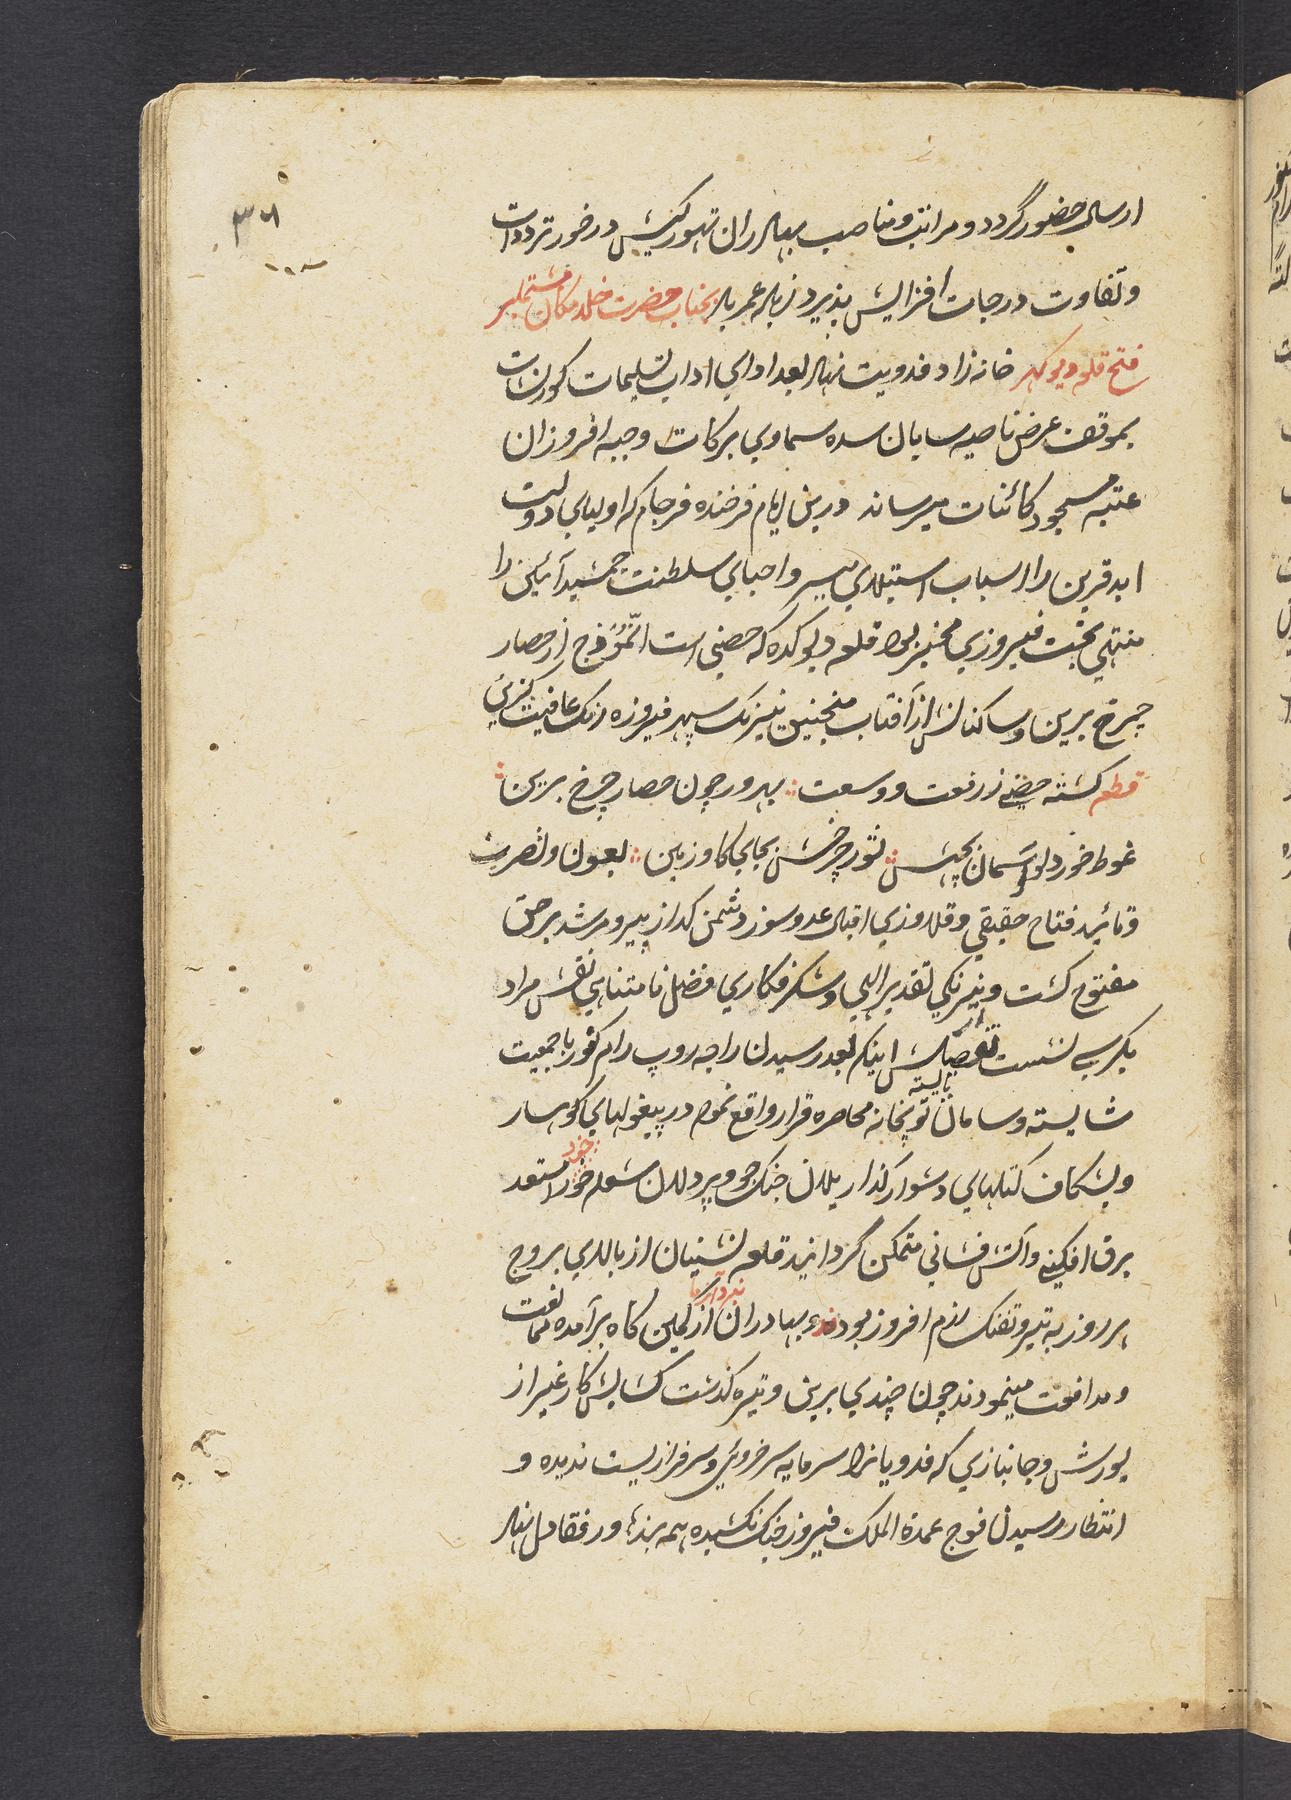 ۳۶
ارسال حضور گردد و مراتب و مناصب بهادران تهور کیش در خور ترددات
و تفاوت درجات افزایش پذیرد زیاده عمر باد بجناب حضرت خلد مکان مشتملبر
فتح قلعه دیوکهر خانه زاد فدویت نهاد بعد ادای اداب تسلیمات کورنشات
بموقف عرض ناصیه سایان سده سماوی برکات وجبه افروزان
عتبه مسجود کائنات میرساند درین ایام فرخنده فرجام که اولیای دولت
ابد قرین را اسباب استیلای میسر و احبای سلطنت جمشید آئین را
منتهی بخت فیروزی مخبر بود قلعه دیوکده که حصنی است انموذج از حصار
چرخ برین و ساکنانش از آفتاب منجنیق نیرنک سپهر فیروزه رنک عافیت کزین
قطعه کشته حصنی ز رفعت و وسعت بهرور چون حصار چرخ برین
غوطه خورد دلو آسمان بچهش ثور چرخش بجای کاو زمین بعون و نصرت
و تائید فتاح حقیقی و قلاوزی اقبال عدو سوز دشمن کداز پیر و مرشد برحق
مفتوح کشت و نیرنکی تقدیر الهی و شکرفکاری فضل نامتناهی نقش مراد
بکرسی نشست تفصیلش اینکه بعد رسیدن راجه روپ رام کهور با جمعیت
شایسته و سامان بایسته توپخانه محاصره قرار واقع نموده در پیغولهای کوهسار
و شکاف کتلهای دشوار کذار یلان جنک جو و پردلان شعله خو را مستعد
برق افکنی و آتش فشانی متمکن گردانید قلعه نشینان از بالای بروج
هر روز به تیر و تفنک رزم افروز بودند و بهادران نبرد آزما از کمین کاه برآمده ممانعت
و مدافعت مینمودند چون چندی برین وتیره کذشت کشایش کار غیر از
یورش و جانبازی که فدویانرا سرمایه سرخروئی و سرفرازیست ندیده و
انتظار رسیدن فوج عمدة الملک فیروز جنک نکشیده همه بندها و رفقا دل نهاد